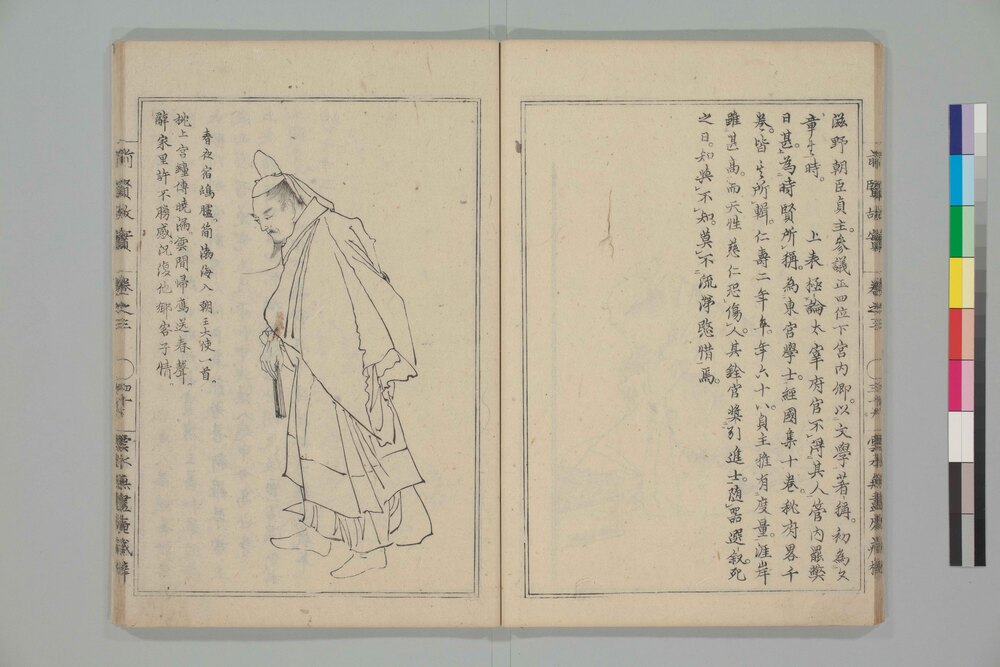 滋野朝臣貞主。參議正四位下宮内卿。以文學著稱。初為文
章生時。上表極論太宰府官不得其人管内罷弊
日甚。為時賢所稱。為東宮學士。經國集十卷。秘府畧千
卷。皆其所輯。仁壽二年卒。年六十八。貞主雅有度量。涯岸
雖甚高。而天性慈仁恐傷人。其銓官奬引進士。随器選叙。死
之日。知與不知。莫不流涕愍惜焉。
前賢故實
卷之三
春夜宿鴻臚。簡渤海入朝王大使一首。
枕上宮鐘傳曉漏。雲間歸鴈送春聲。
辭家里許不勝感。況復他鄉客子情。
前賢故實
卷之三
四十